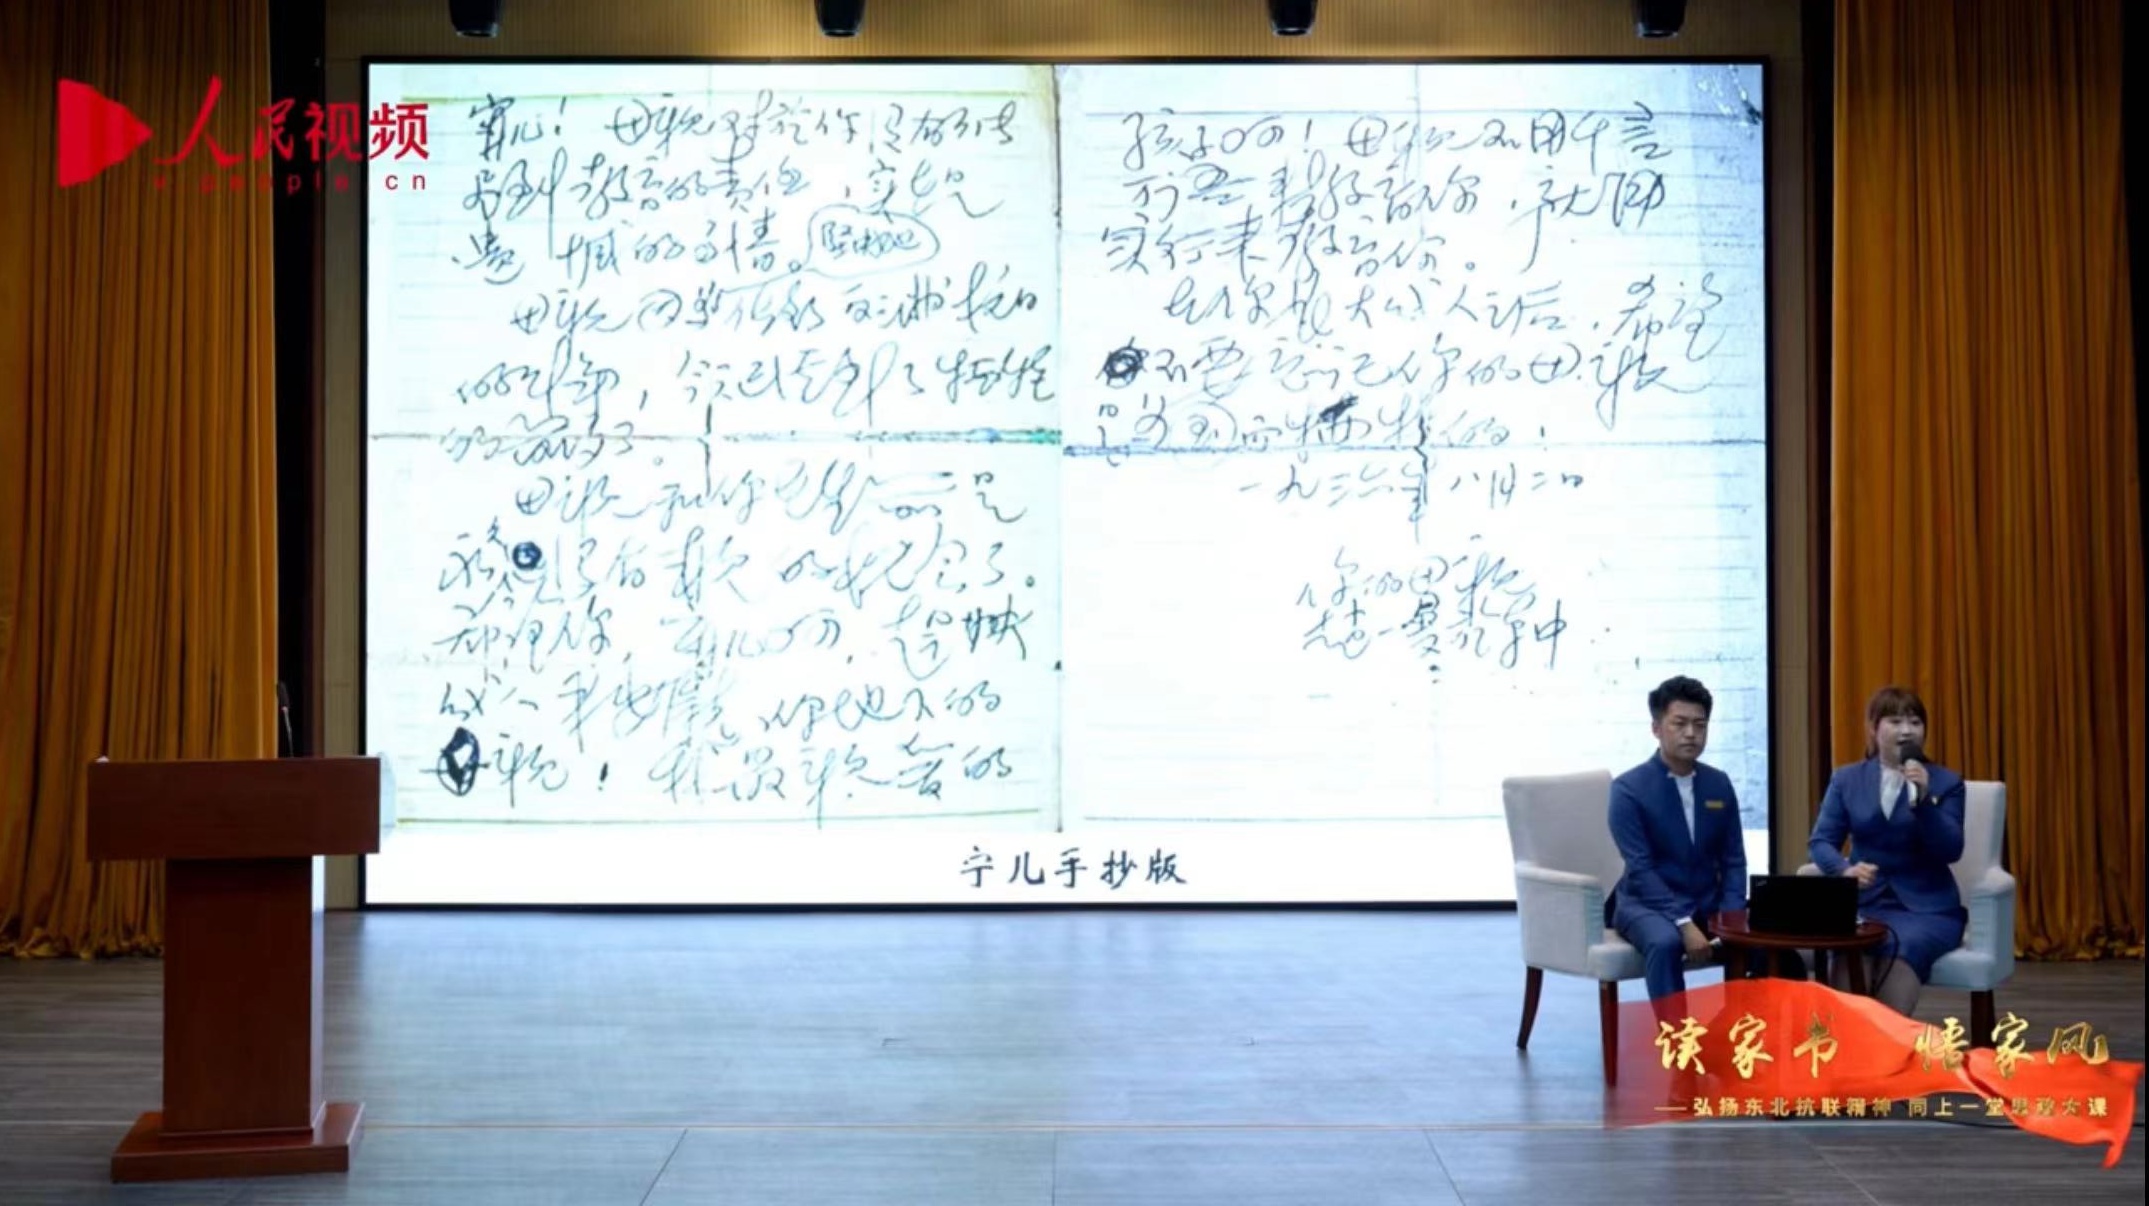 人民视频
people cn
宁儿！母亲对于你没有能尽
到教育的责任，实在是
遗憾的事情。
母亲因坚决地做了反满抗日
的斗争，今天已经到了牺牲
的前夕了。
母亲和你在生前是
永久没有再见的机会了。
希望你，宁儿啊，赶快
成人，来安慰你地下的
母亲！我最亲爱的
孩子啊！母亲不用千言
万语来教育你，就用
实行来教育你。
在你长大成人之后，希望
不要忘记你的母亲
是为国而牺牲的！
一九三六年八月二日
你的母亲
赵一曼于车中
宁儿手抄版
读家书 悟家风
——弘扬东北抗联精神 同上一堂思政大课